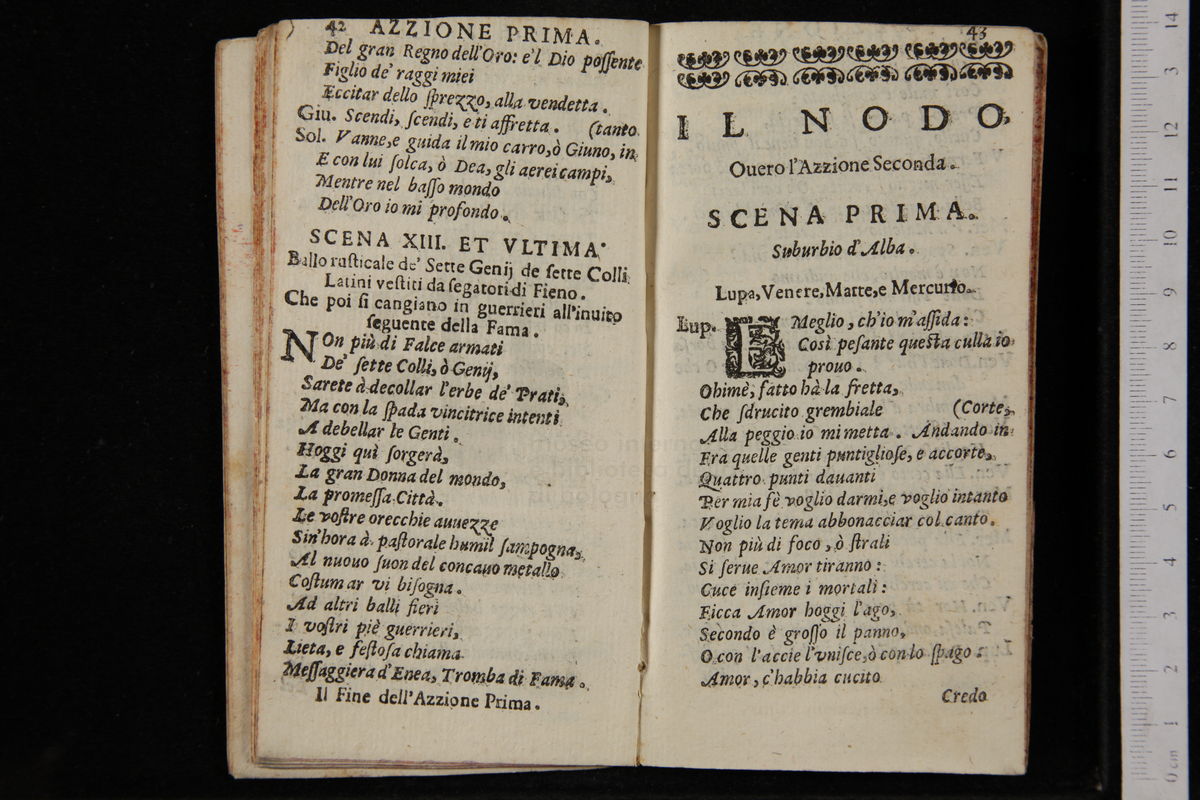 42 AZZIONE PRIMA.
Del gran Regno dell'Oro: e'l Dio poſſente
Figlio de' raggi miei
Eccitar dello ſprezzo, alla vendetta.
Giu. Scendi, ſcendi, e ti affretta. (tanto
Sol. Vanne, e guida il mio carro, ò Giuno, in
E con lui ſolca, ò Dea, gli aerei campi,
Mentre nel baſſo mondo
Dell'Oro io mi profondo.
SCENA XIII. ET VLTIMA.
Ballo ruſticale de' Sette Genij de ſette Colli
Latini veſtiti da ſegatori di Fieno.
Che poi ſi cangiano in guerrieri all'inuito
ſeguente della Fama.
NOn più di Falce armati
De' ſette Colli, ò Genij,
Sarete à decollar l'erbe de' Prati,
Ma con la ſpada vincitrice intenti
A debellar le Genti.
Hoggi quì ſorgerà,
La gran Donna del mondo,
La promeſſa Città.
Le voſtre orecchie auuezze
Sin'hora à paſtorale humil ſampogna,
Al nuouo ſuon del concauo metallo
Coſtumar vi biſogna.
Ad altri balli fieri
I voſtri piè guerrieri,
Lieta, e feſtoſa chiama
Meſſaggiera d'Enea, Tromba di Fama.
Il Fine dell'Azzione Prima.
43
IL NODO,
Ouero l'Azzione Seconda.
SCENA PRIMA.
Suburbio d'Alba.
Lupa, Venere, Marte, e Mercurio.
Lup. E Meglio, ch'io m'aſſida:
Così peſante queſta culla io
prouo.
Ohimè, fatto hà la fretta,
Che ſdrucito grembiale (Corte,
Alla peggio io mi metta. Andando in
Fra quelle genti puntiglioſe, e accorte,
Quattro punti dauanti
Per mia fè voglio darmi, e voglio intanto
Voglio la tema abbonacciar col canto.
Non più di foco, ò ſtrali
Si ſerue Amor tiranno:
Cuce inſieme i mortali:
Ficca Amor hoggi l'ago,
Secondo è groſſo il panno,
O con l'accie l'vniſce, ò con lo ſpago:
Amor, c'habbia cucito
Credo